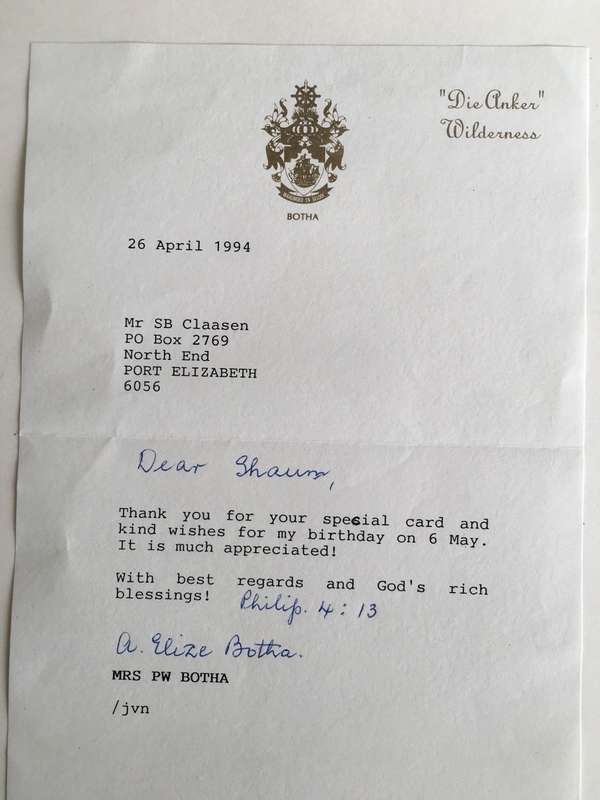 "Die Anker"
Wilderness
BOTHA
26 April 1994
Mr SB Claasen
PO Box 2769
North End
PORT ELIZABETH
6056
Dear Shaun,
Thank you for your special card and
kind wishes for my birthday on 6 May.
It is much appreciated!
With best regards and God's rich
blessings! Philip. 4 : 13
A. Elize Botha.
MRS PW BOTHA
/jvn